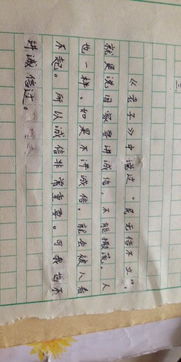 《老子》中道过，“民无信不立”。
就是说国家要讲诚信，不能撒谎。人
也一样，如果不讲诚信，就会被人看
不起。所以诚信非常重要。可我也不
讲诚信过。